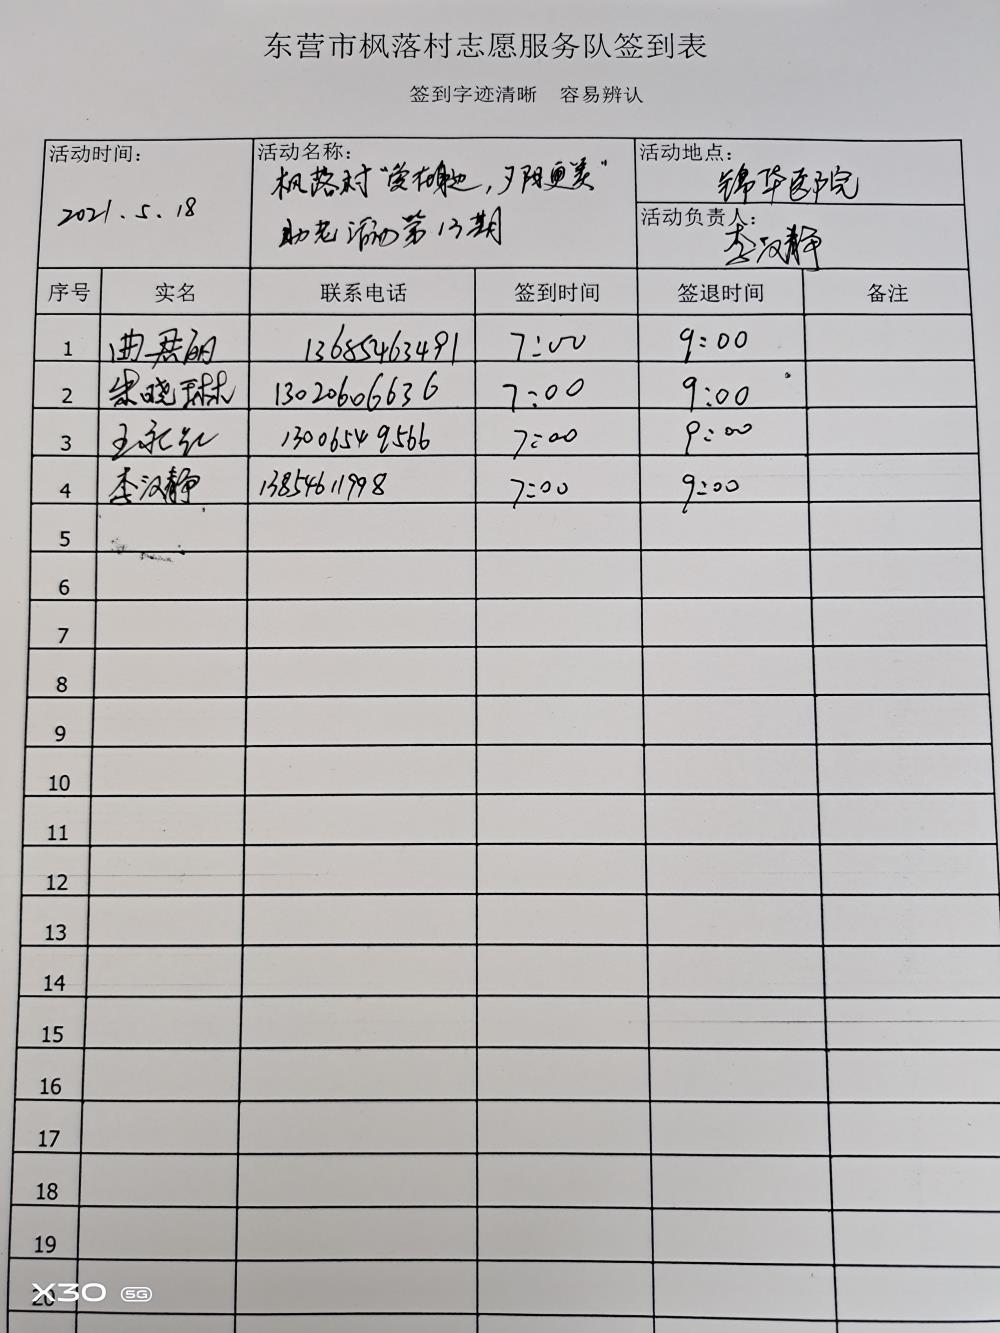 东营市枫落村志愿服务队签到表
签到字迹清晰 容易辨认
活动时间：
2021.5.18
活动名称：
枫落村"爱相随，夕阳更美"
助老活动第13期
活动地点：
锦华医院
活动负责人：
李汉静
序号 实名 联系电话 签到时间 签退时间 备注
1 曲 丽 13685463491 7:00 9:00
2 宋晓琳 13020606636 7:00 9:00
3 王永红 13006549566 7:00 9:00
4 李汉静 13854611998 7:00 9:00
5
6
7
8
9
10
11
12
13
14
15
16
17
18
19
20
X30 5G